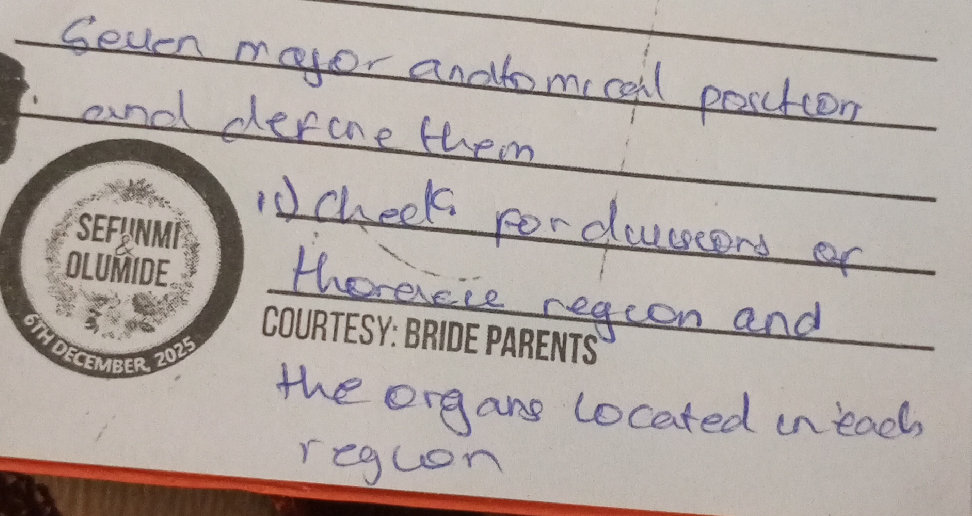 Seven major anatomical position
and define them
ii) Check for divisions of
thoracic region and
SEFUNMI
&
OLUMIDE
6TH DECEMBER, 2025
COURTESY: BRIDE PARENTS
the organs located in each
region